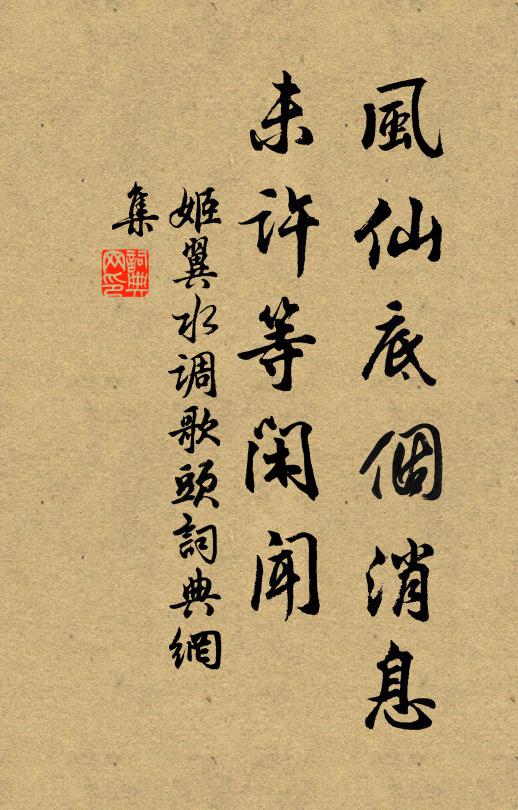 風仙底個消息
未许等闲闻
姬翼水调歌頭詞典網
集
詞典网印